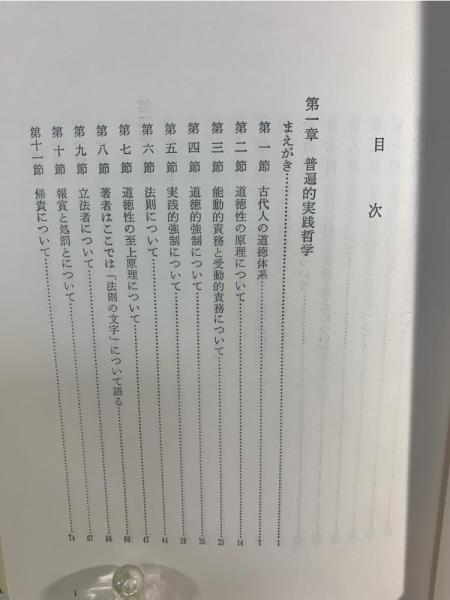 目次
第一章 普遍的実践哲学
まえがき……1
第一節 古代人の道徳体系……7
第二節 道徳性の原理について……14
第三節 能動的責務と受動的責務について……25
第四節 道徳的強制について……35
第五節 実践的強制について……38
第六節 法則について……44
第七節 道徳性の至上原理について……47
第八節 著者はここでは「法則の文字」について語る……60
第九節 立法者について……66
第十節 報賞と処罰とについて……67
第十一節 帰責について……74
1